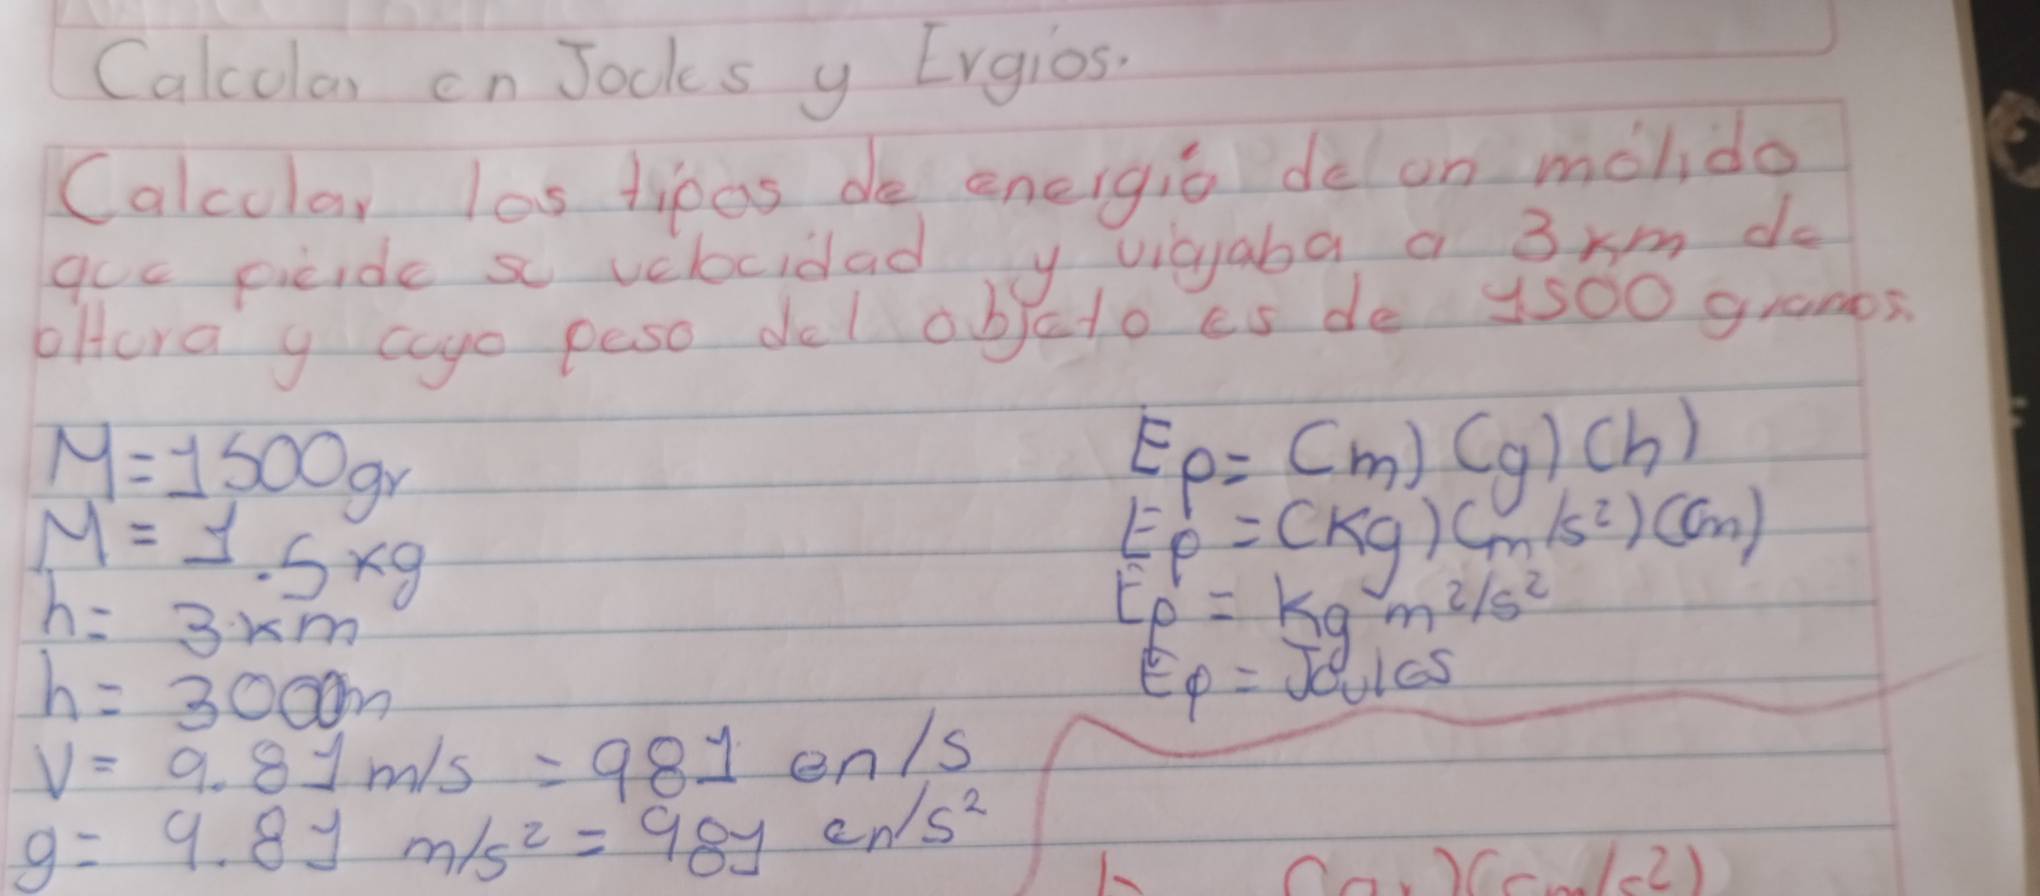 Calcular en Joules y Ergios.
Calcular los tipos de energía de un mólido
que pierde su velocidad y viajaba a 3 km de
altura y cuyo peso del objeto es de 1500 gramos.
M = 1500 gr
M = 1.5 kg
h = 3 km
h = 3000m
V = 9.81 m/s = 981 cm/s
g = 9.81 m/s² = 981 cm/s²
Ep = (m) (g) (h)
Ep = (Kg) (m/s²) (m)
Ep = Kg m²/s²
Ep = Joules